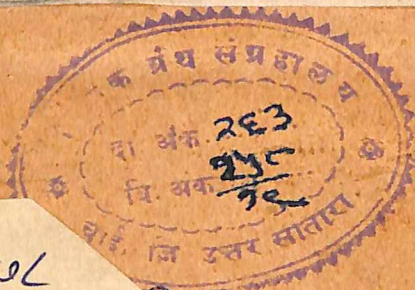 क ग्रंथ संग्रहालय
दा अंक २६३
वि. अंक
वाई, जि उत्तर सातारा